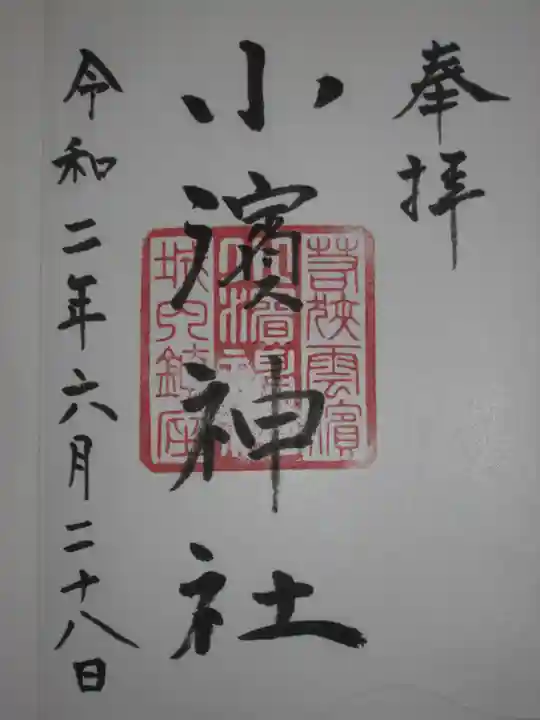 奉拝
小濱神社
令和二年六月二十八日
若狭雲濱
小濱神社
城内鎮座